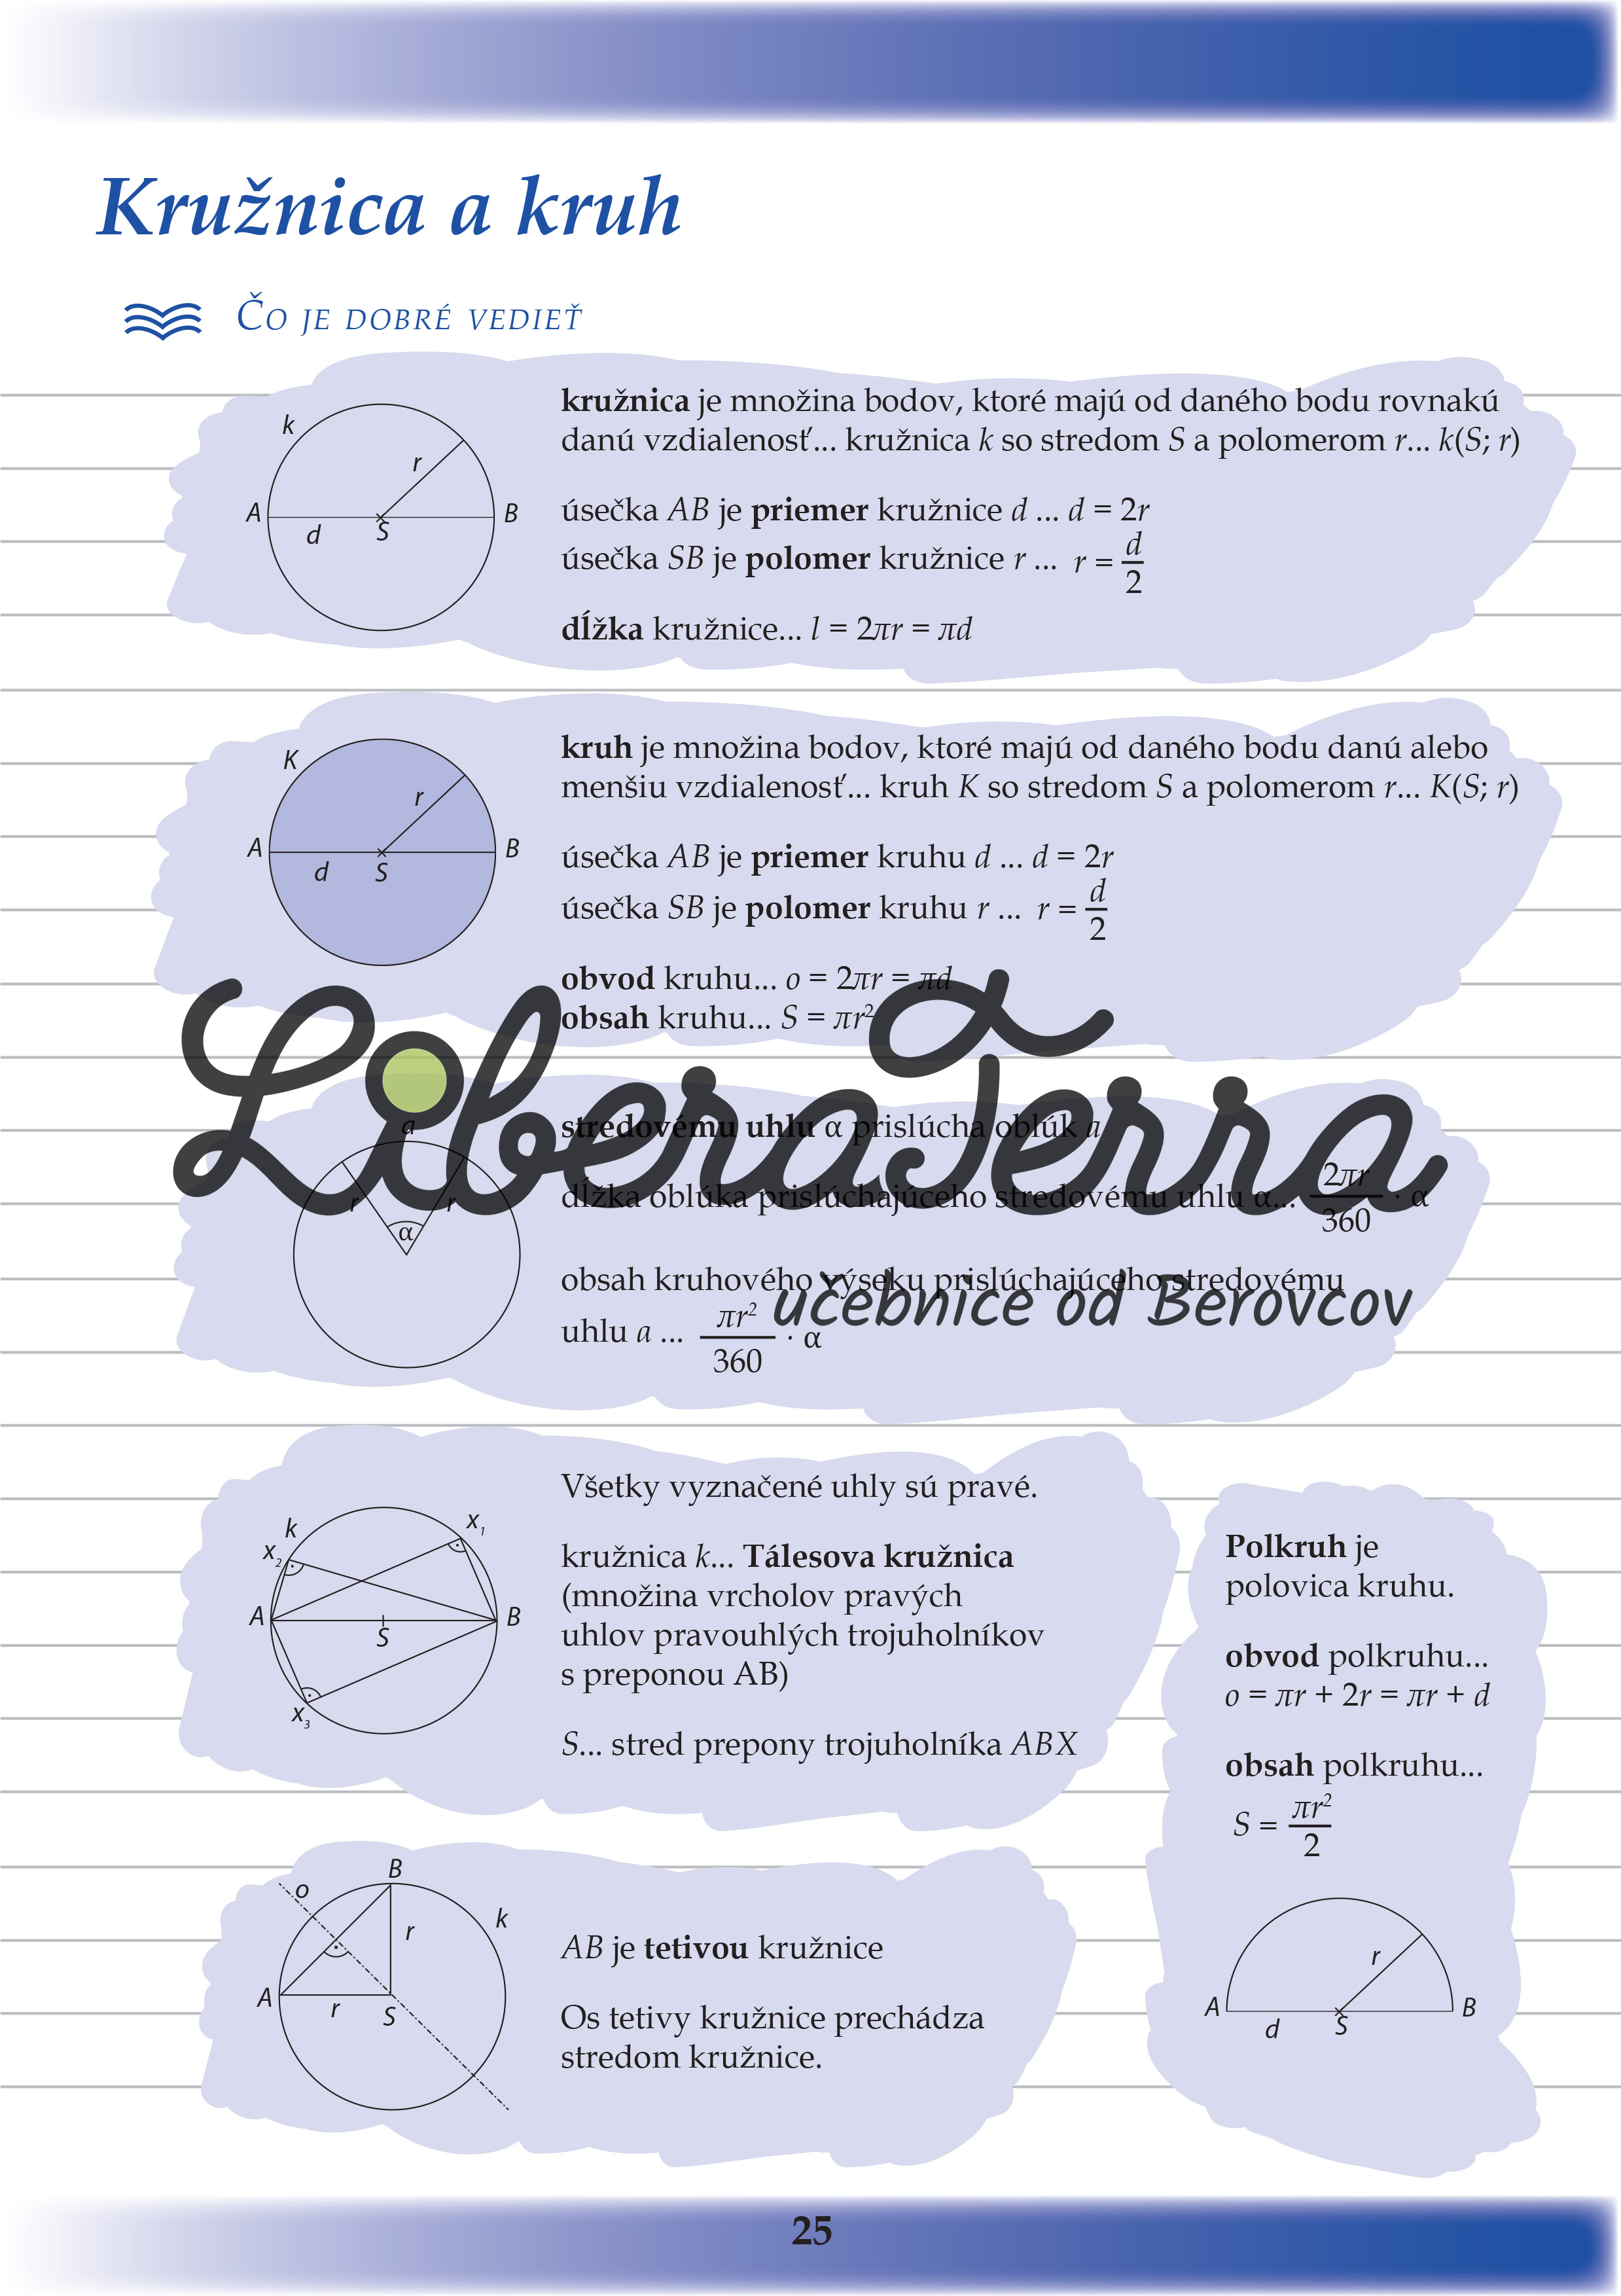 Kružnica a kruh
Čo je dobré vedieť
k
r
A
d
S
B
kružnica je množina bodov, ktoré majú od daného bodu rovnakú
danú vzdialenosť... kružnica k so stredom S a polomerom r... k(S; r)
úsečka AB je priemer kružnice d ... d = 2r
úsečka SB je polomer kružnice r ... r = d/2
dĺžka kružnice... l = 2πr = πd
K
r
A
d
S
B
kruh je množina bodov, ktoré majú od daného bodu danú alebo
menšiu vzdialenosť... kruh K so stredom S a polomerom r... K(S; r)
úsečka AB je priemer kruhu d ... d = 2r
úsečka SB je polomer kruhu r ... r = d/2
obvod kruhu... o = 2πr = πd
obsah kruhu... S = πr²
LiberaTerra
učebnice od Berovcov
a
r
r
α
stredovému uhlu α prislúcha oblúk a
dĺžka oblúka prislúchajúceho stredovému uhlu α... 2πr/360 · α
obsah kruhového výseku prislúchajúceho stredovému
uhlu a ... πr²/360 · α
k
x₁
x₂
A
S
B
x₃
Všetky vyznačené uhly sú pravé.
kružnica k... Tálesova kružnica
(množina vrcholov pravých
uhlov pravouhlých trojuholníkov
s preponou AB)
S... stred prepony trojuholníka ABX
Polkruh je
polovica kruhu.
obvod polkruhu...
o = πr + 2r = πr + d
obsah polkruhu...
S = πr²/2
r
A
d
S
B
B
o
k
r
A
r
S
AB je tetivou kružnice
Os tetivy kružnice prechádza
stredom kružnice.
25